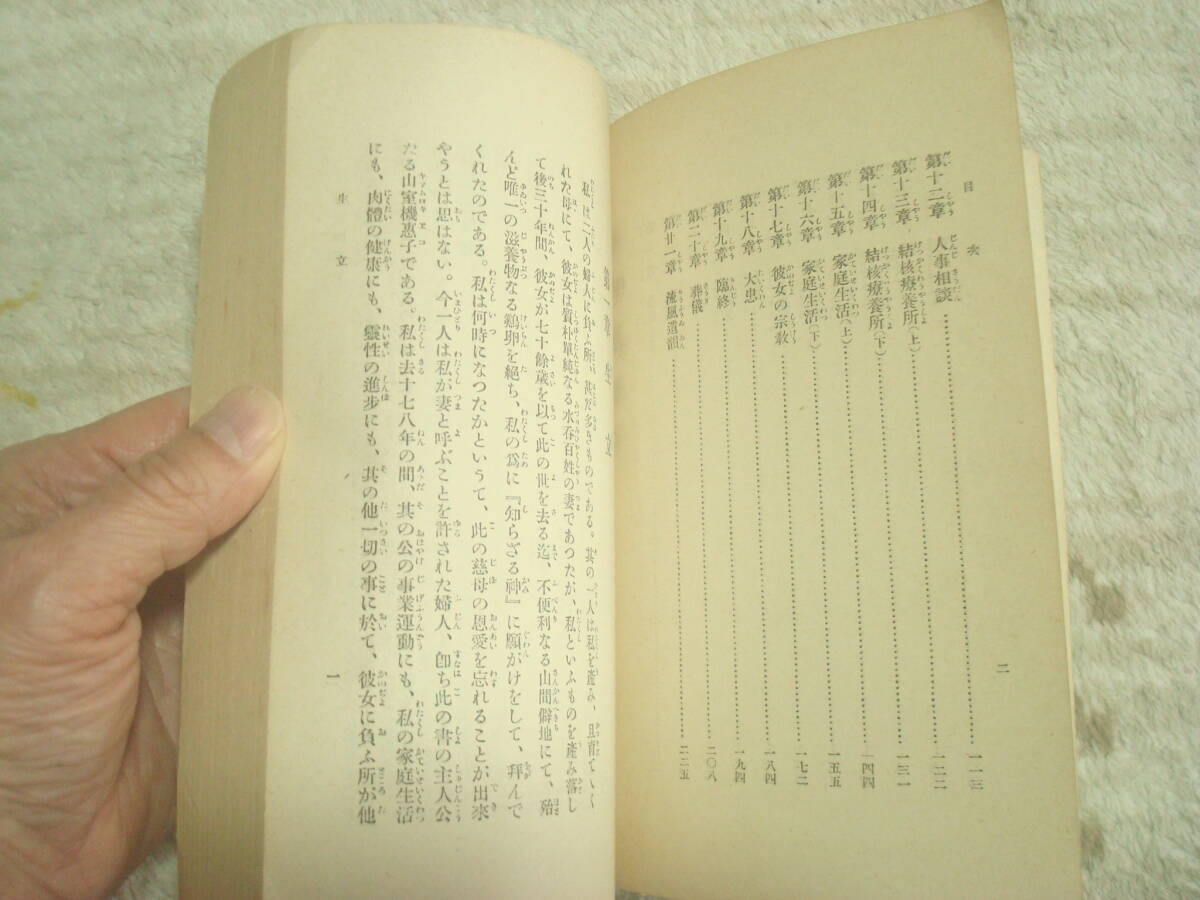 目次
第十二章 人事相談……一一三
第十三章 結核療養所(上)……一二二
第十四章 結核療養所(下)……一三一
第十五章 家庭生活(上)……一四四
第十六章 家庭生活(下)……一五五
第十七章 彼女の宗教……一七二
第十八章 大患……一八四
第十九章 臨終……一九四
第二十章 葬儀……二〇八
第廿一章 流風遺韻……二二五
二
第一章 生立
私は二人の婦人に負ふ所、甚だ多きものである。其の一人は私を產み、且育てゝく
れた母にて、彼女は質朴單純なる水呑百姓の妻であつたが、私といふものを產み落し
て後三十年間、彼女が七十餘歲を以て此の世を去る迄、不便利なる山間僻地にて、殆
んど唯一の滋養物なる鷄卵を絕ち、私の爲に『知らざる神』に願がけをして、拜んで
くれたのである。私は何時になつたかというて、此の慈母の恩愛を忘れることが出來
やうとは思はない。今一人は私が妻と呼ぶことを許された婦人、卽ち此の書の主人公
たる山室機惠子である。私は去十七八年の間、其の公の事業運動にも、私の家庭生活
にも、肉體の健康にも、靈性の進步にも、其の他一切の事に於て、彼女に負ふ所が他
生立
一